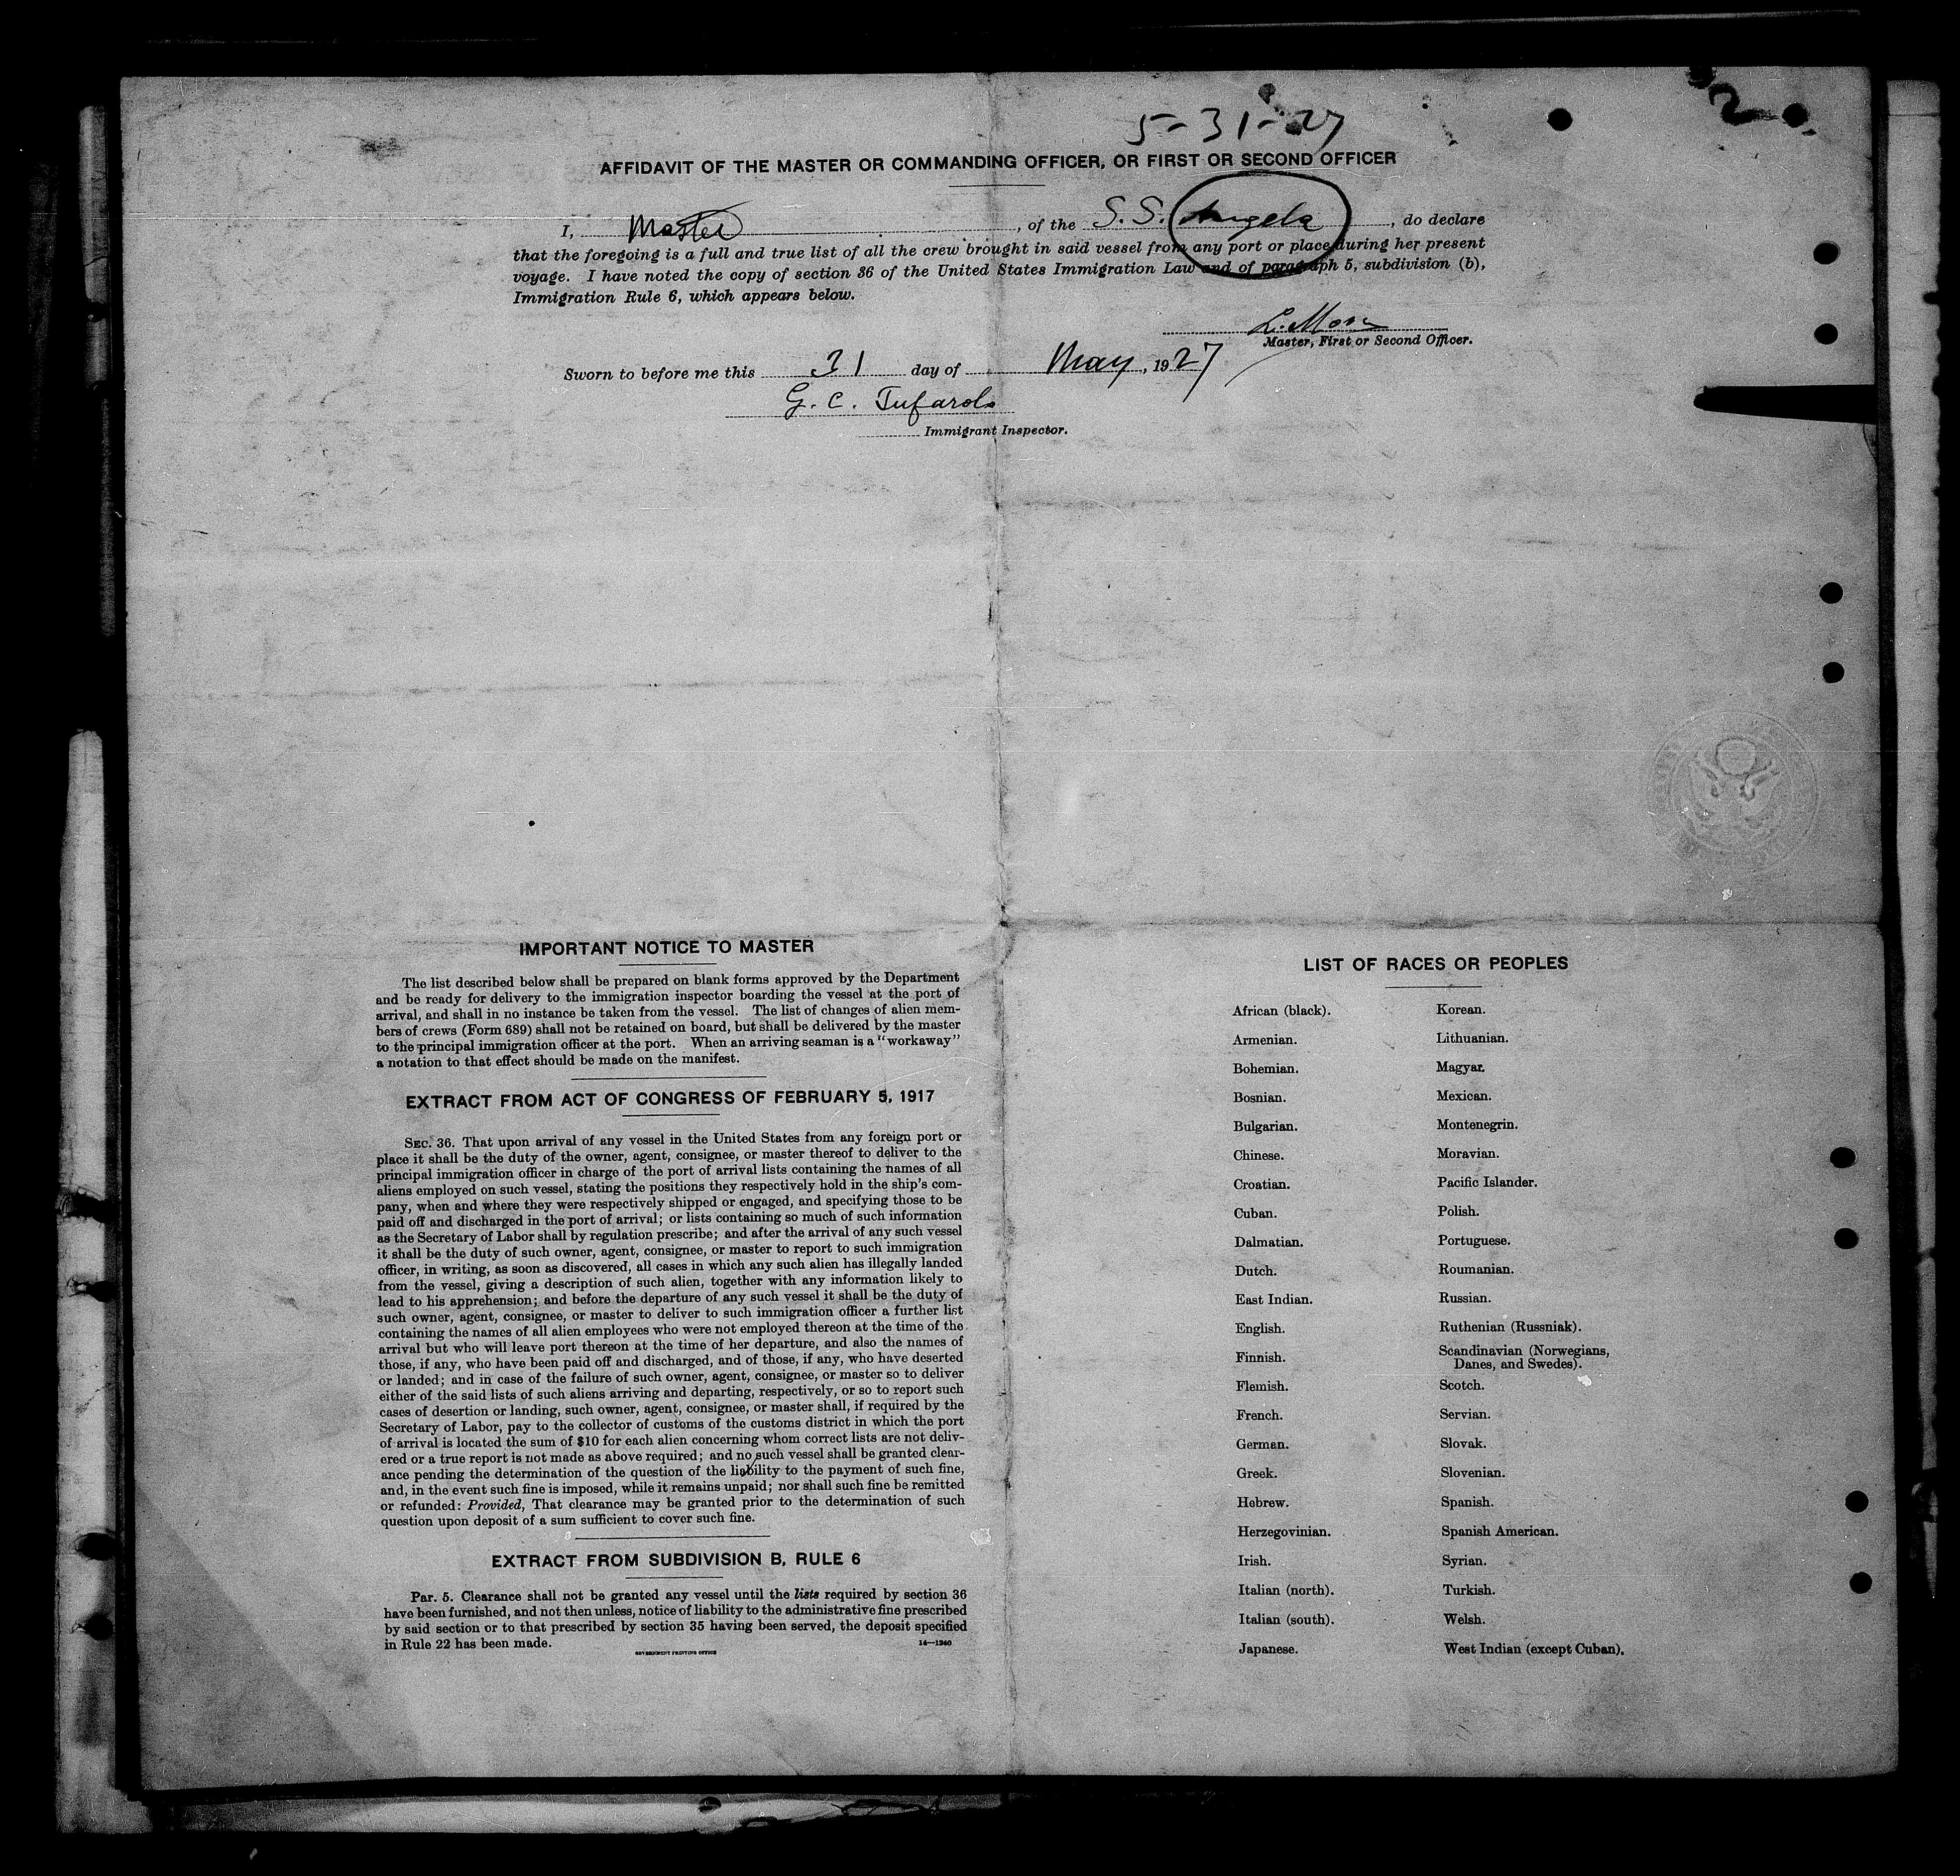 5-31-27
AFFIDAVIT OF THE MASTER OR COMMANDING OFFICER, OR FIRST OR SECOND OFFICER
I, Master, of the S.S. Angela, do declare
that the foregoing is a full and true list of all the crew brought in said vessel from any port or place during her present
voyage. I have noted the copy of section 36 of the United States Immigration Law and of paragraph 5, subdivision (b),
Immigration Rule 6, which appears below.
Master, First or Second Officer.
Sworn to before me this 31 day of May, 1927
G. C. Tufarolo
Immigrant Inspector.
IMPORTANT NOTICE TO MASTER
The list described below shall be prepared on blank forms approved by the Department
and be ready for delivery to the immigration inspector boarding the vessel at the port of
arrival, and shall in no instance be taken from the vessel. The list of changes of alien mem-
bers of crews (Form 689) shall not be retained on board, but shall be delivered by the master
to the principal immigration officer at the port. When an arriving seaman is a "workaway"
a notation to that effect should be made on the manifest.
EXTRACT FROM ACT OF CONGRESS OF FEBRUARY 5, 1917
SEC. 36. That upon arrival of any vessel in the United States from any foreign port or
place it shall be the duty of the owner, agent, consignee, or master thereof to deliver to the
principal immigration officer in charge of the port of arrival lists containing the names of all
aliens employed on such vessel, stating the positions they respectively hold in the ship's com-
pany, when and where they were respectively shipped or engaged, and specifying those to be
paid off and discharged in the port of arrival; or lists containing so much of such information
as the Secretary of Labor shall by regulation prescribe; and after the arrival of any such vessel
it shall be the duty of such owner, agent, consignee, or master to report to such immigration
officer, in writing, as soon as discovered, all cases in which any such alien has illegally landed
from the vessel, giving a description of such alien, together with any information likely to
lead to his apprehension; and before the departure of any such vessel it shall be the duty of
such owner, agent, consignee, or master to deliver to such immigration officer a further list
containing the names of all alien employees who were not employed thereon at the time of the
arrival but who will leave port thereon at the time of her departure, and also the names of
those, if any, who have been paid off and discharged, and of those, if any, who have deserted
or landed; and in case of the failure of such owner, agent, consignee, or master so to deliver
either of the said lists of such aliens arriving and departing, respectively, or so to report such
cases of desertion or landing, such owner, agent, consignee, or master shall, if required by the
Secretary of Labor, pay to the collector of customs of the customs district in which the port
of arrival is located the sum of $10 for each alien concerning whom correct lists are not deliv-
ered or a true report is not made as above required; and no such vessel shall be granted clear-
ance pending the determination of the question of the liability to the payment of such fine,
and, in the event such fine is imposed, while it remains unpaid; nor shall such fine be remitted
or refunded: Provided, That clearance may be granted prior to the determination of such
question upon deposit of a sum sufficient to cover such fine.
EXTRACT FROM SUBDIVISION B, RULE 6
Par. 5. Clearance shall not be granted any vessel until the lists required by section 36
have been furnished, and not then unless, notice of liability to the administrative fine prescribed
by said section or to that prescribed by section 35 having been served, the deposit specified
in Rule 22 has been made.
14—1240
GOVERNMENT PRINTING OFFICE
LIST OF RACES OR PEOPLES
African (black).
Armenian.
Bohemian.
Bosnian.
Bulgarian.
Chinese.
Croatian.
Cuban.
Dalmatian.
Dutch.
East Indian.
English.
Finnish.
Flemish.
French.
German.
Greek.
Hebrew.
Herzegovinian.
Irish.
Italian (north).
Italian (south).
Japanese.
Korean.
Lithuanian.
Magyar.
Mexican.
Montenegrin.
Moravian.
Pacific Islander.
Polish.
Portuguese.
Roumanian.
Russian.
Ruthenian (Russniak).
Scandinavian (Norwegians,
Danes, and Swedes).
Scotch.
Servian.
Slovak.
Slovenian.
Spanish.
Spanish American.
Syrian.
Turkish.
Welsh.
West Indian (except Cuban).